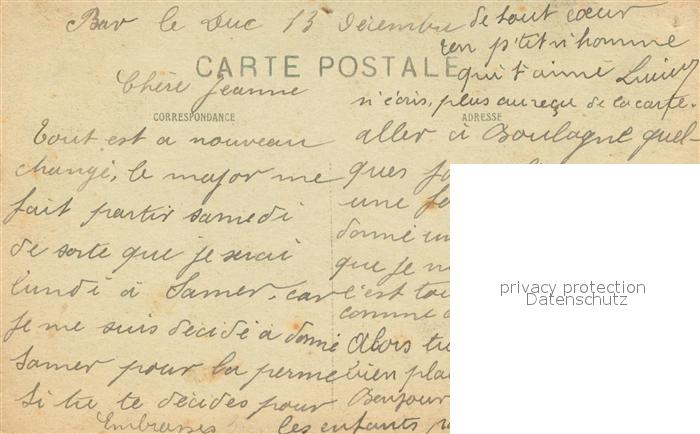 Bar le Duc 13 Décembre
CARTE POSTALE
Chère Jeanne
CORRESPONDANCE
Tout est a nouveau
changé, le major me
fait partir samedi
de sorte que je serai
lundi à Samer, car
je me suis décidé à donné
Samer pour la perme
Si tu te décides pour
ADRESSE
aller à Boulogne quel-
ques
une
donné
que je
c'est
comme
Alors tu
bien
Bonjour
Embrasses les enfants
de tout cœur
ton p'tit n'homme
qui t'aime
n'écris, plus au reçu de la carte.
privacy protection
Datenschutz